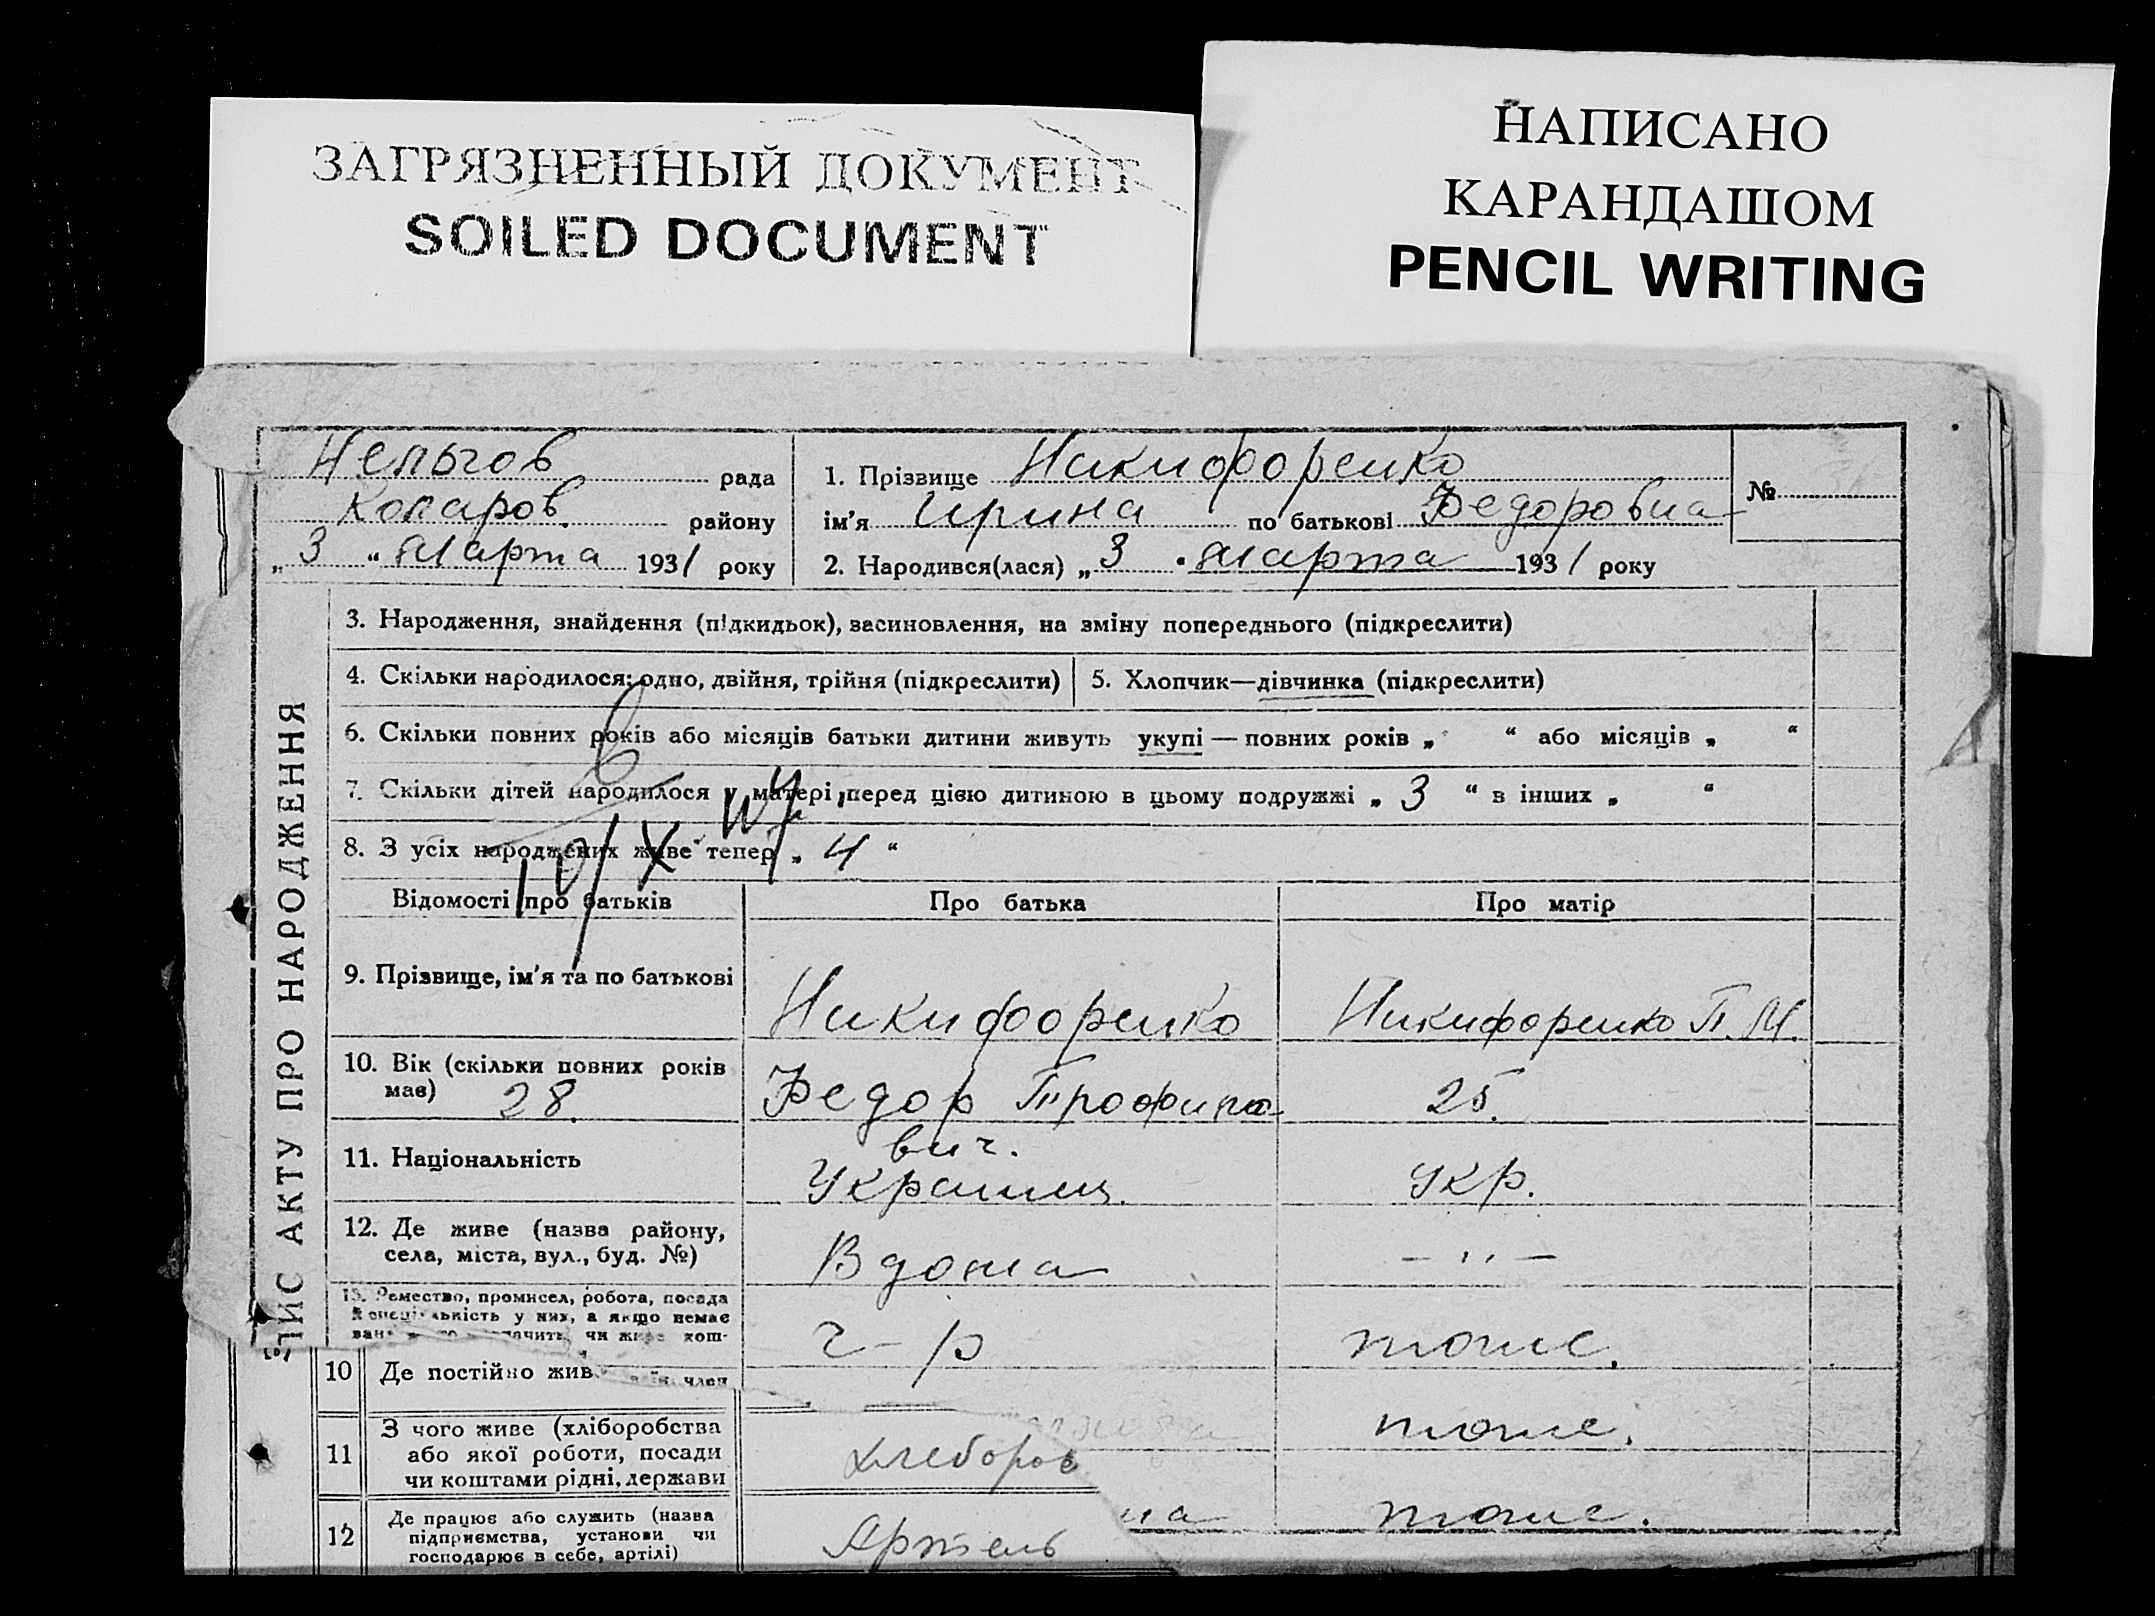 ЗАГРЯЗНЕННЫЙ ДОКУМЕНТ
SOILED DOCUMENT
НАПИСАНО
КАРАНДАШОМ
PENCIL WRITING
Нельгов рада
Комаров. району
„ 3 “ Марта 1931 року
1. Прізвище Никифоренко
ім’я Ирина по батькові Федоровна
2. Народився(лася) „ 3 " Марта 1931 року
№
3. Народження, знайдення (підкидьок), засиновлення, на зміну попереднього (підкреслити)
4. Скільки народилося: одно, двійня, трійня (підкреслити)
5. Хлопчик—дівчинка (підкреслити)
6. Скільки повних років або місяців батьки дитини живуть укупі — повних років „ “ або місяців „ “
7. Скільки дітей народилося у матері перед цією дитиною в цьому подружжі „ 3 “ в інших „ “
8. З усіх народжених живе тепер „ 4 “
10/X
Відомості про батьків Про батька Про матір
9. Прізвище, ім’я та по батькові
Никифоренко Никифоренко П. М.
10. Вік (скільки повних років
має) 28.
Федор Трофимо
вич.
25.
11. Національність
Украинц. Укр.
12. Де живе (назва району,
села, міста, вул., буд. №)
Вдома — ,, —
13. Ремество, промисел, робота, посада
й спеціяльність у них, а якщо немає
чи живе кош-
х-р тоже.
ПИС АКТУ ПРО НАРОДЖЕННЯ
10 Де постійно жив
член
тоже.
11 З чого живе (хліборобства
або якої роботи, посади
чи коштами рідні, держави
хлебороб
12 Де працює або служить (назва
підприємства, установи чи
господарює в себе, артілі)
Артель
на тоже.